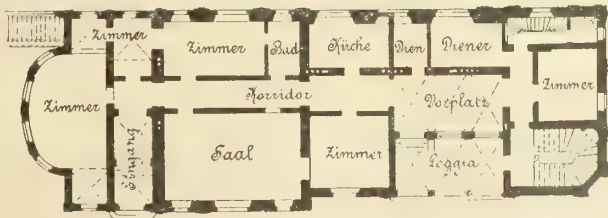 Zimmer
Zimmer
Bad
Küche
Dien
Diener
Zimmer
Zimmer
Korridor
Vorplatz
Eingang
Saal
Zimmer
Loggia